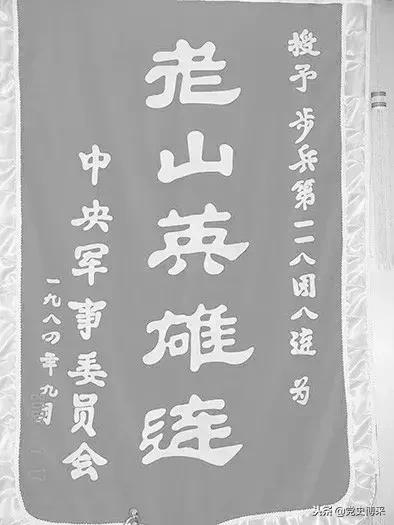 授予 步兵第一一八团八连 为
老山英雄连
中央军事委员会
一九八四年九月
头条 @党史博采